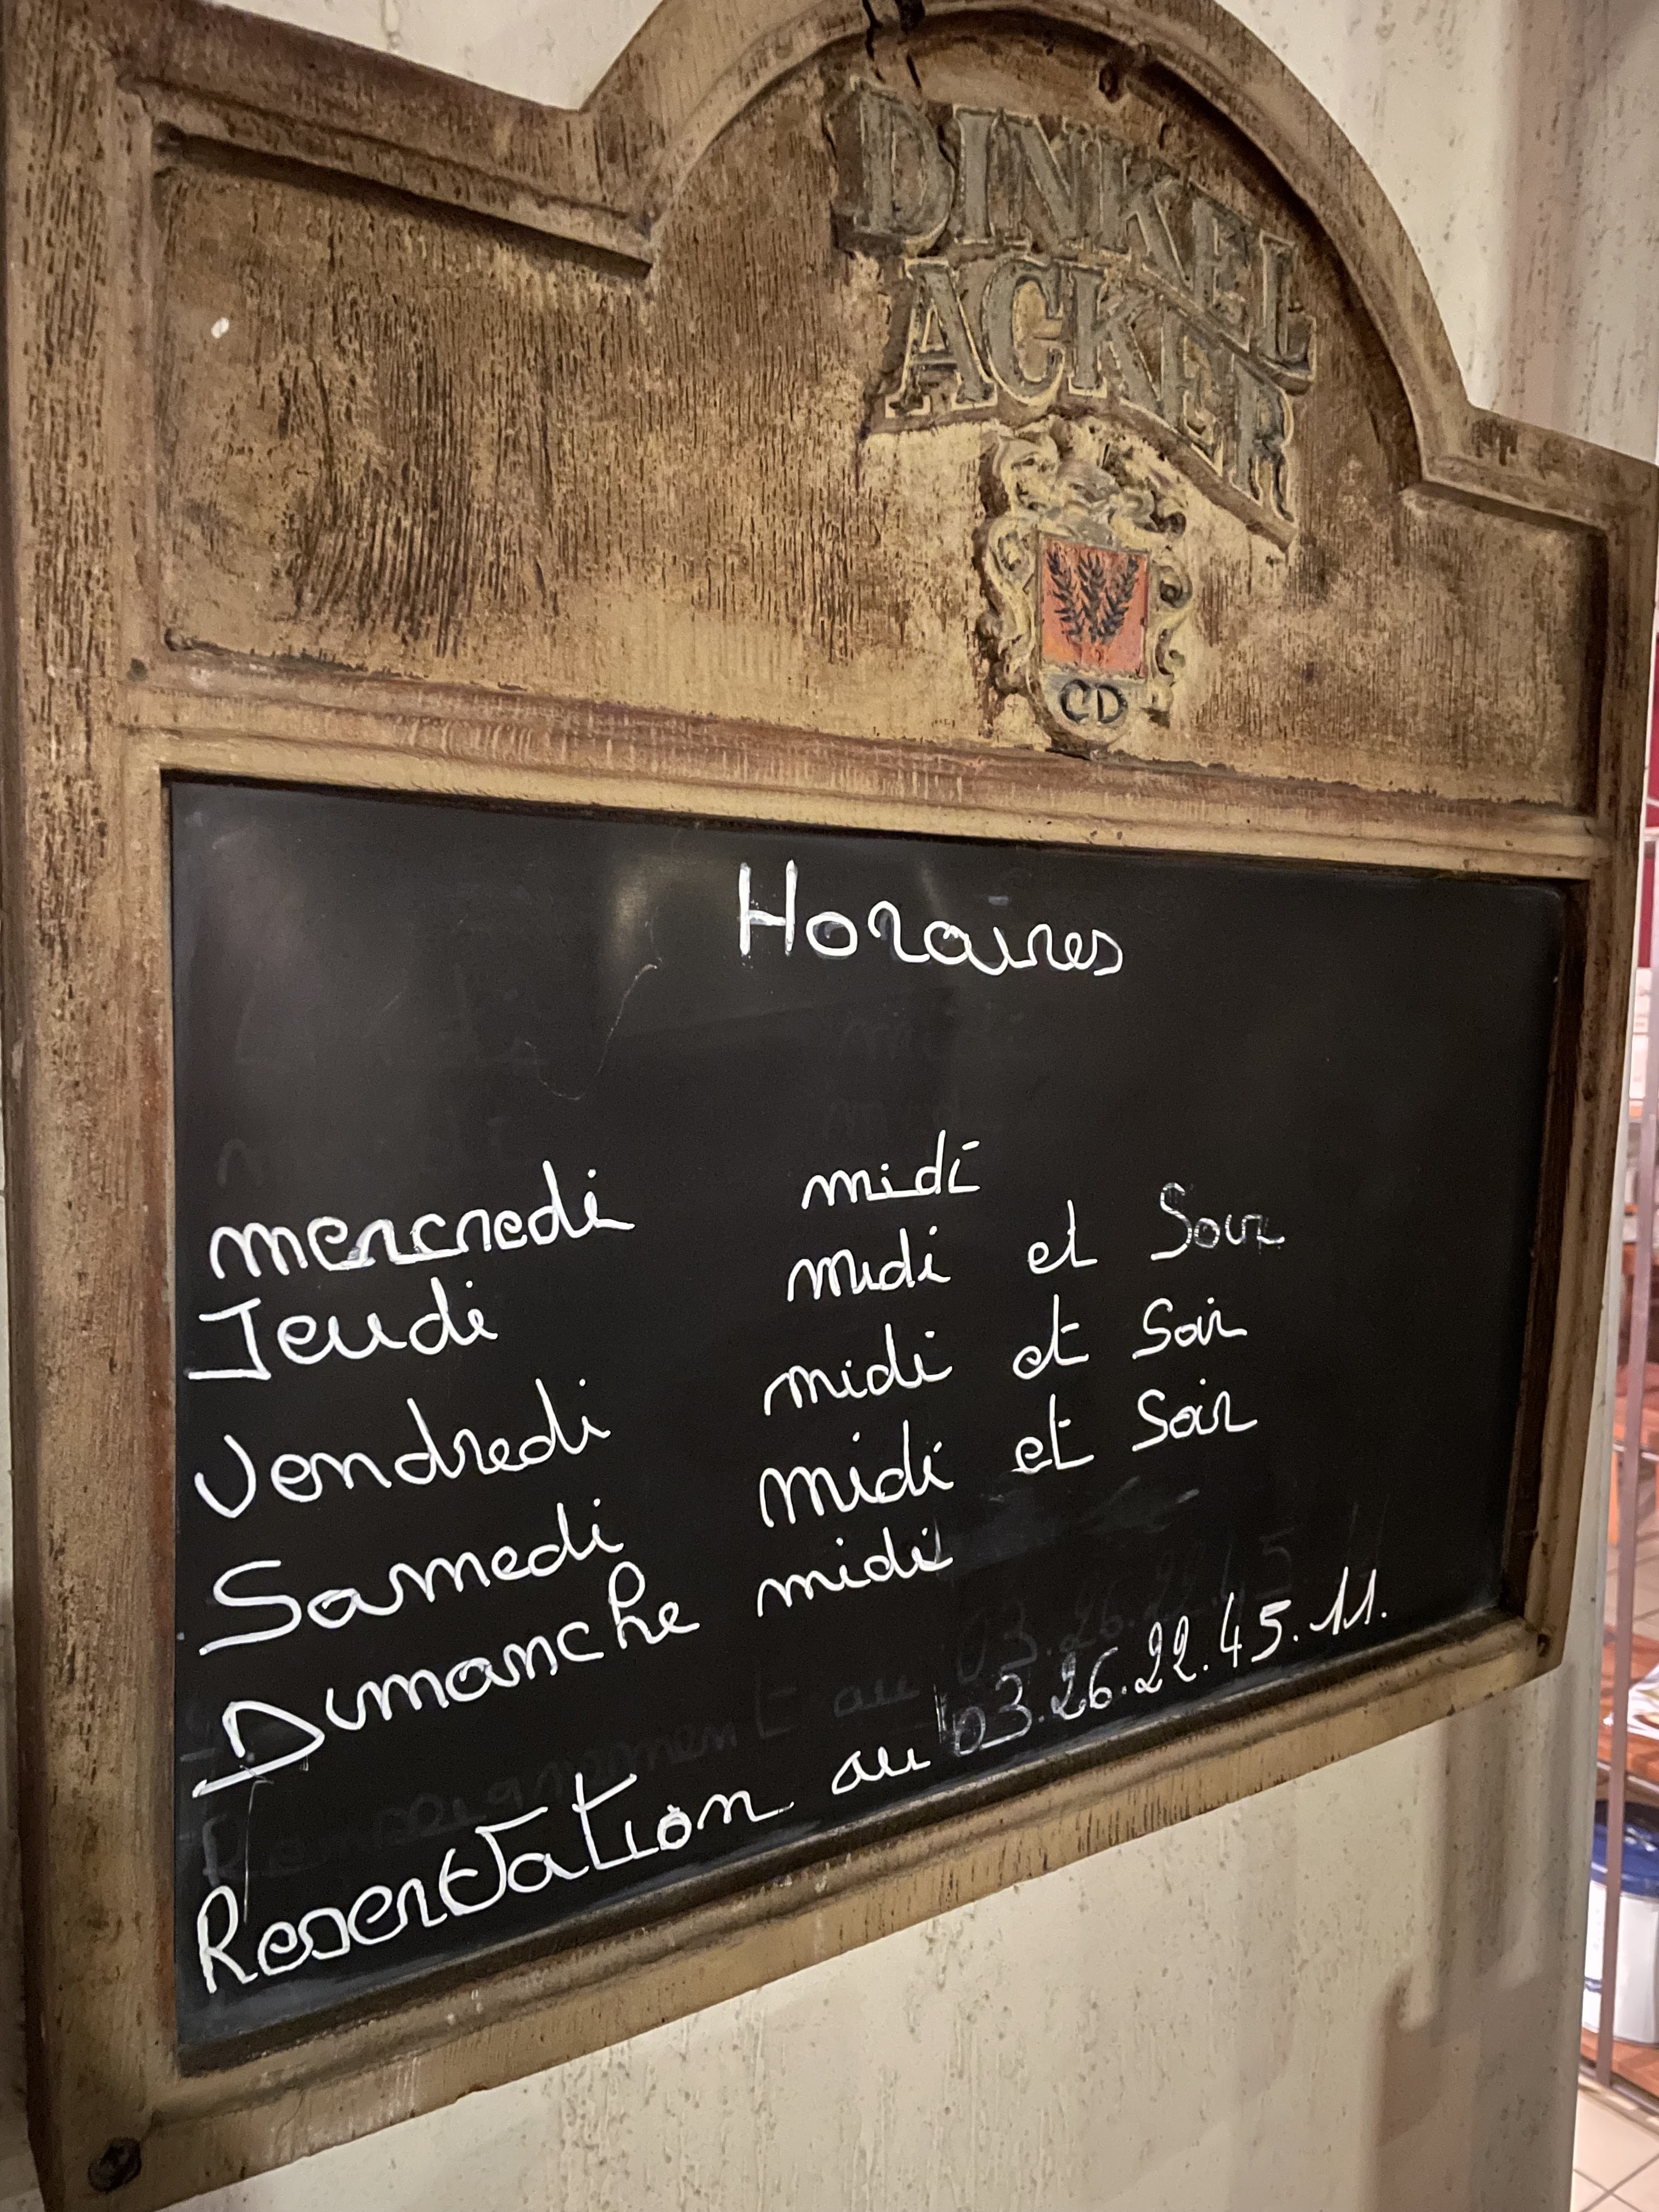 DINKEL
ACKER
CD
Horaires
mercredi midi
Jeudi midi et Soir
Vendredi midi et Soir
Samedi midi et Soir
Dimanche midi
Reservation au 03.26.22.45.11.